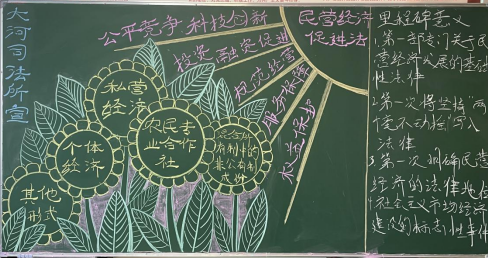 大河司法所宣
公平竞争
科技创新
投资融资促进
规范经营
服务保障
权益保护
民营经济
促进法
私营
经济
个体
经济
农民专
业合作
社
其他
形式
混合所
有制中的
非公有制
成份
里程碑意义
1.第一部专门关于民
营经济发展的基础
性法律
2.第一次将坚持“两
个毫不动摇”写入
法律
3.第一次明确民营
经济的法律地位
社会主义市场经济
建设的标志性事件